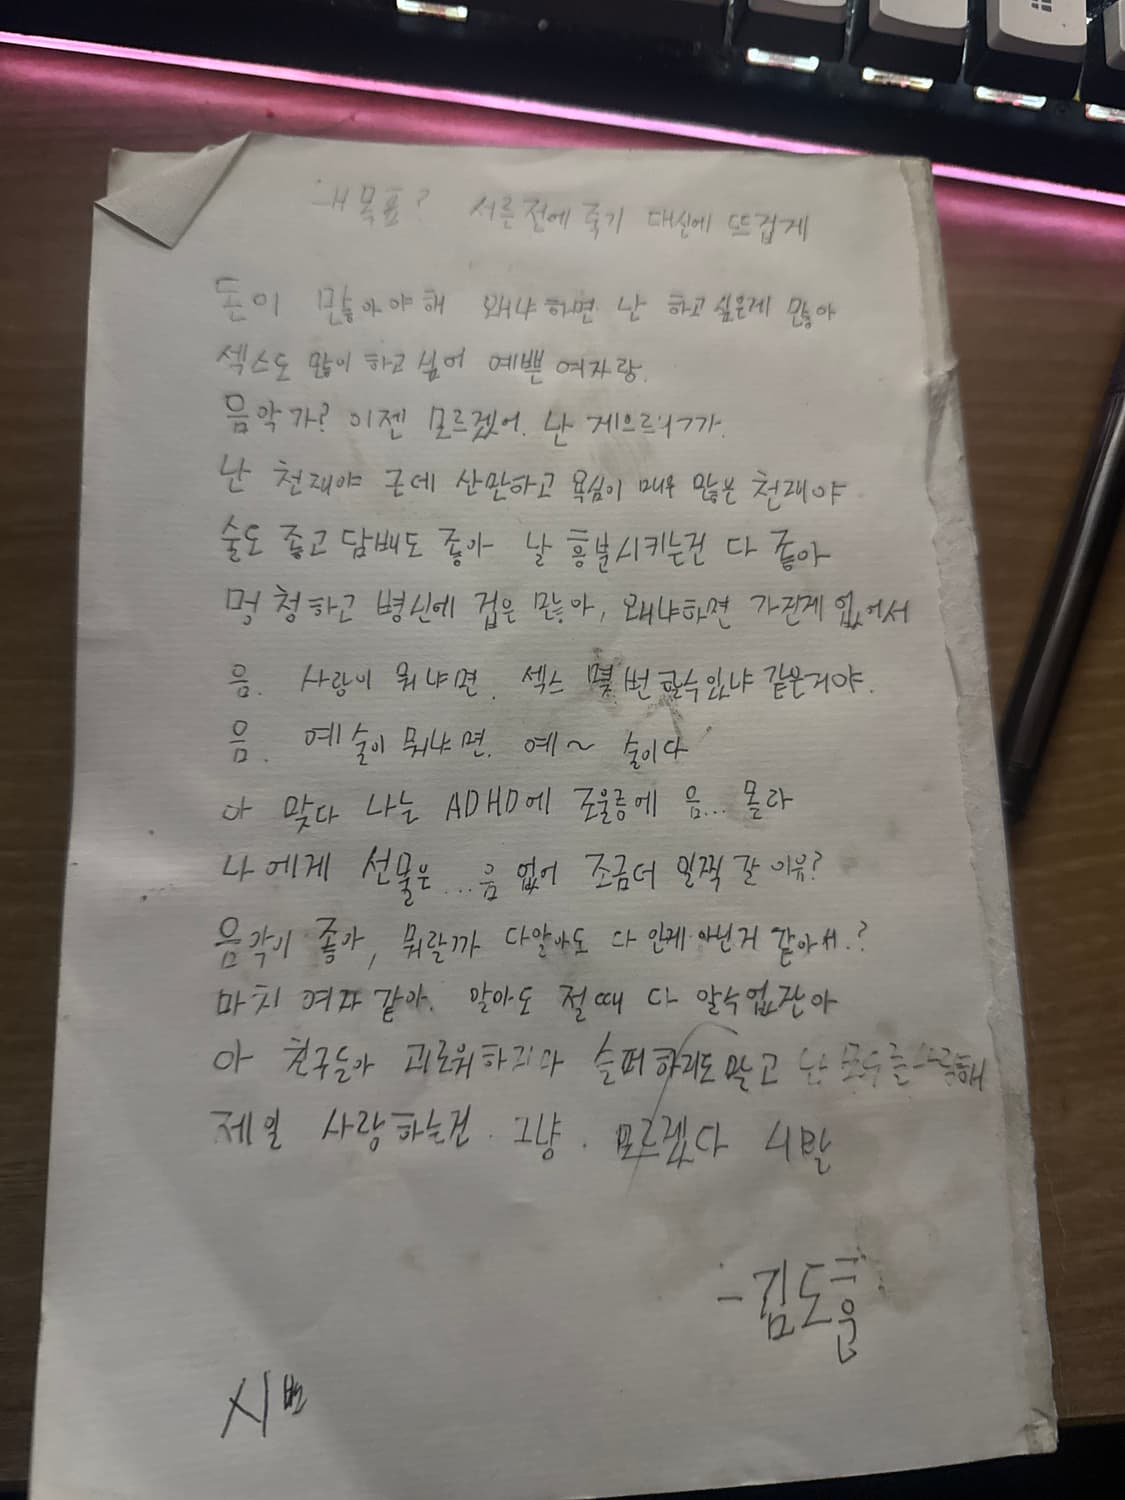 내 목표? 서른 전에 죽기 대신에 뜨겁게
돈이 많아야해 왜냐하면 난 하고싶은게 많아
섹스도 많이 하고싶어 예쁜 여자랑.
음악가? 이젠 모르겠어. 난 게으르니까.
난 천재야 근데 산만하고 욕심이 매우 많은 천재야
술도 좋고 담배도 좋아 날 흥분시키는건 다 좋아
멍청하고 병신에 겁은 많아, 왜냐하면 가진게 없어서
음. 사랑이 뭐냐면. 섹스 몇번 할수있냐 같은거야.
음. 예술이 뭐냐면. 예~ 술이다
아 맞다 나는 ADHD에 조울증에 음... 몰라
나에게 선물은 ...음 없어 조금더 일찍 갈 이유?
음악이 좋아, 뭐랄까 다알아도 다 안게 아닌거 같아서.?
마치 여자 같아. 알아도 절때 다 알수없잖아
아 친구들아 괴로워하지마 슬퍼하지도말고 난 모두를사랑해
제일 사랑하는건. 그냥. 모르겠다 시발
-김도훈
시벌